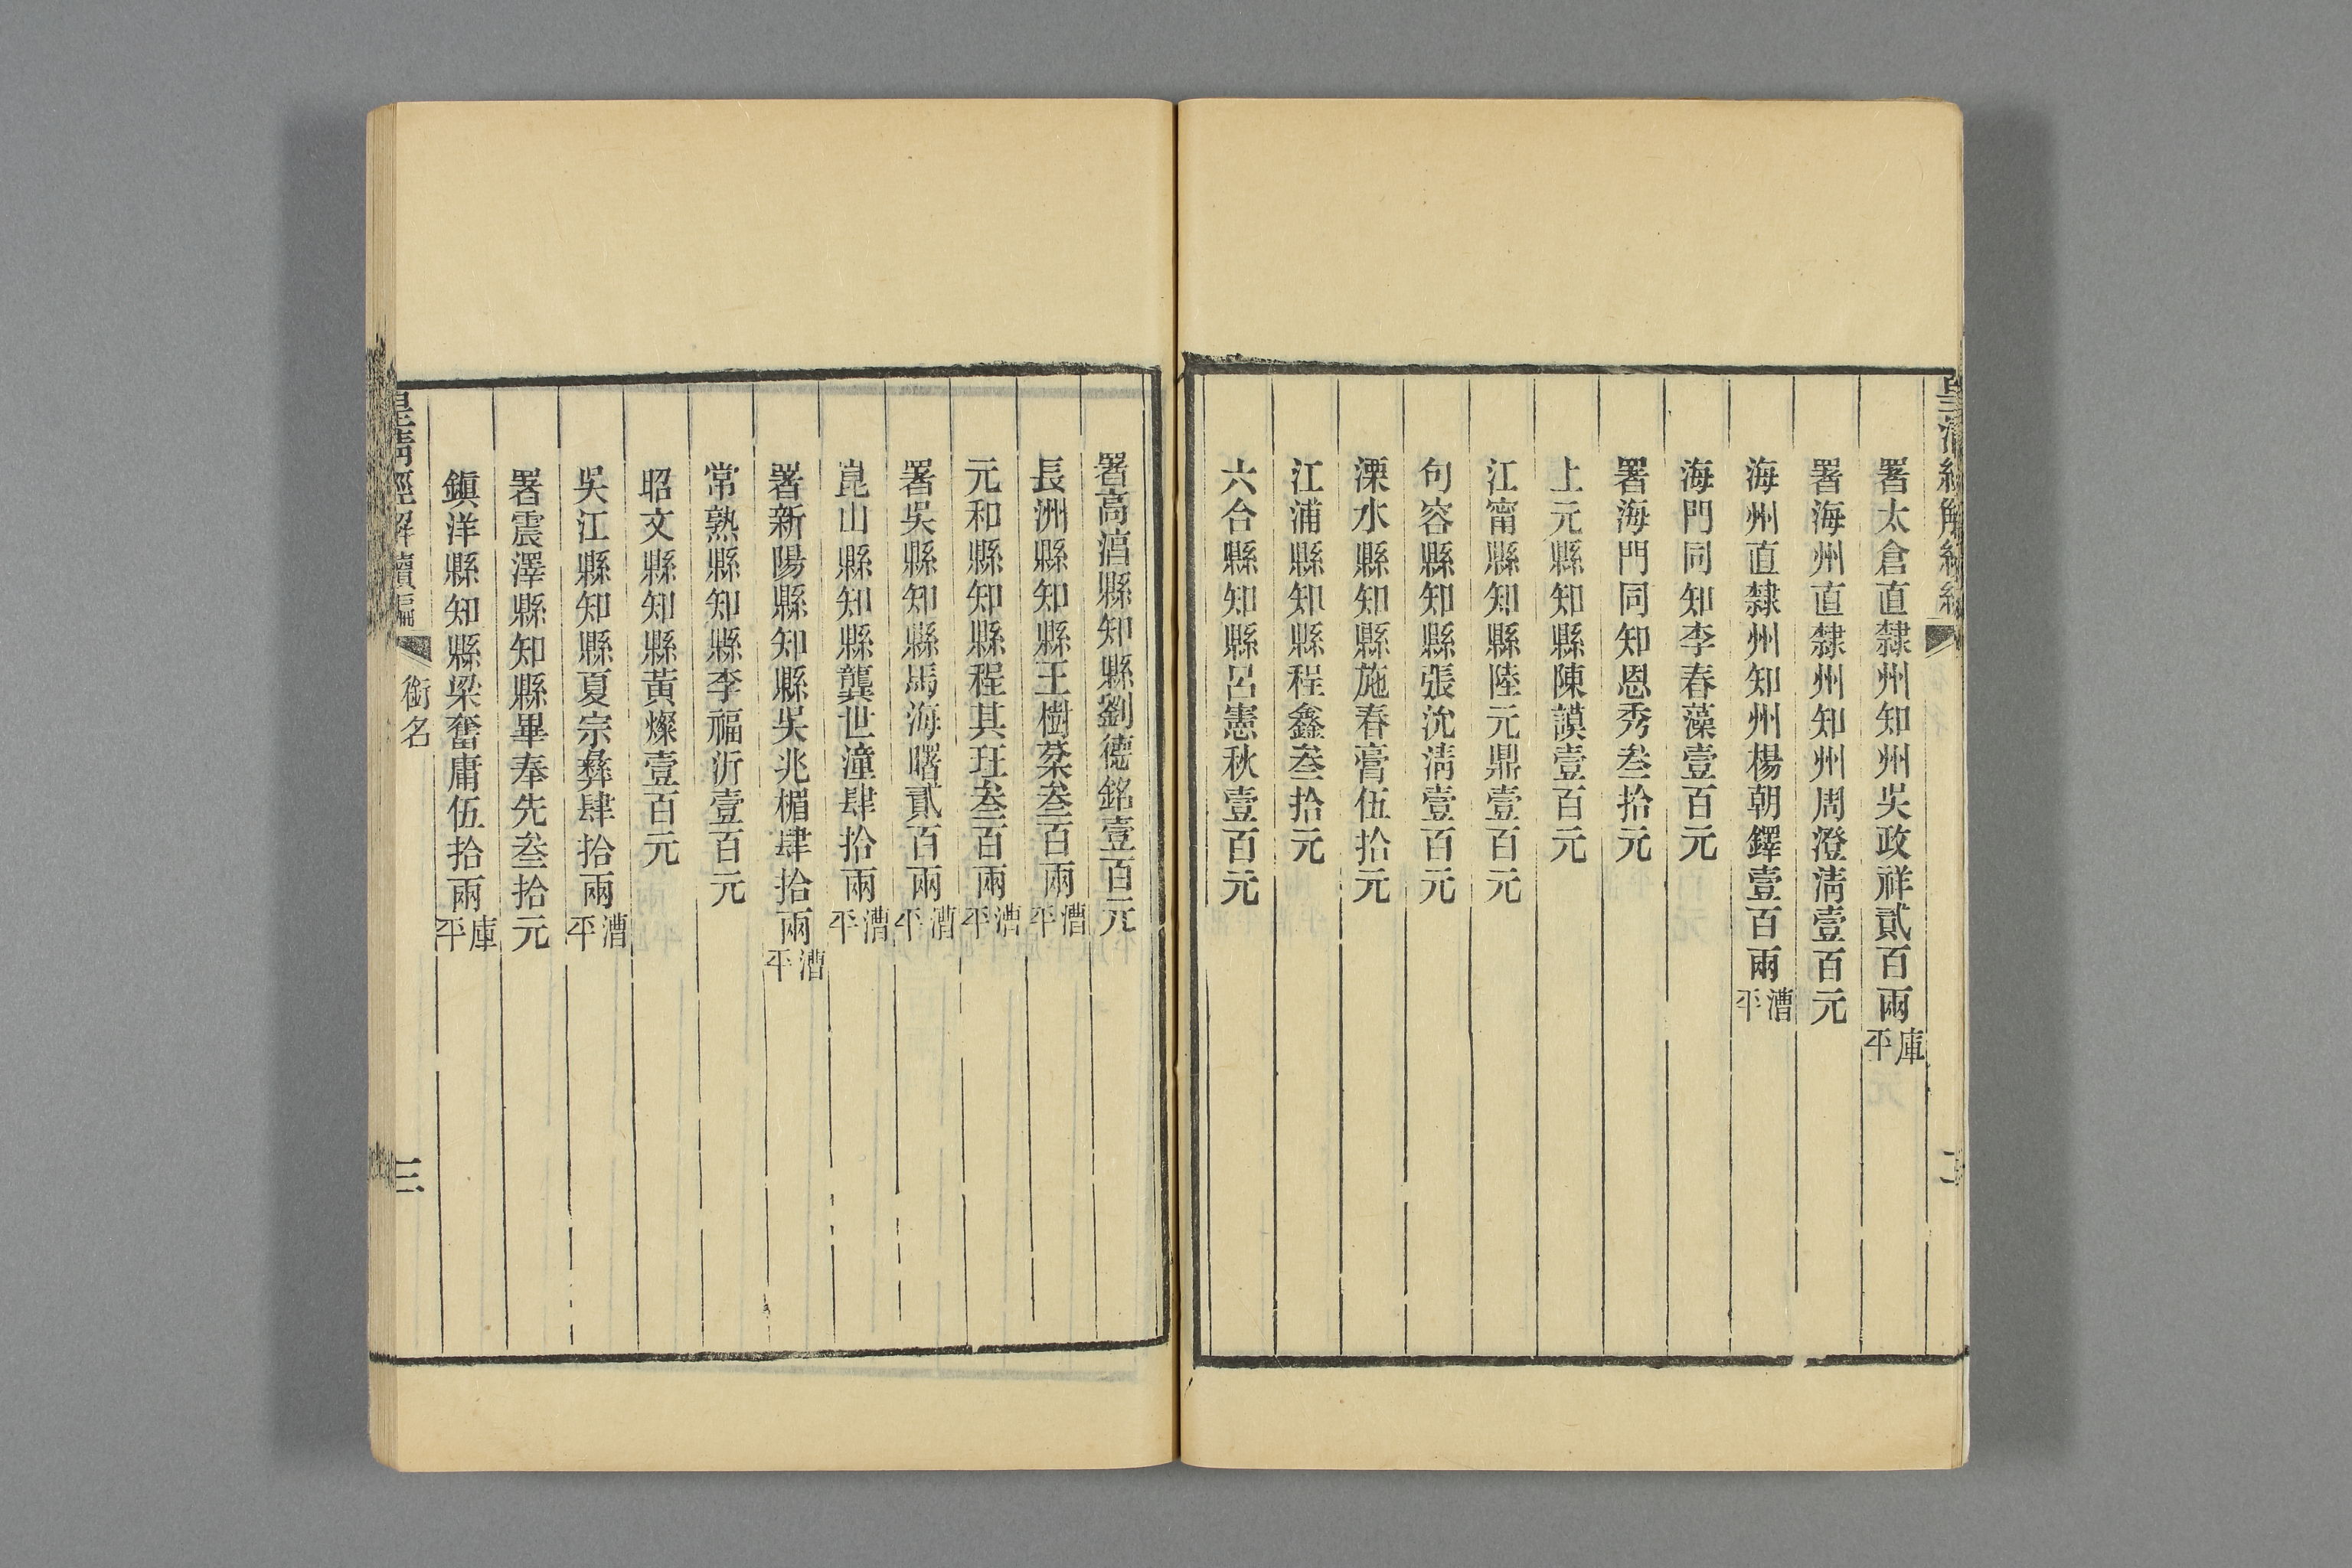 署太倉直隸州知州吳政祥貳百兩庫平
署海州直隸州知州周澄淸壹百元
海州直隸州知州楊朝鐸壹百兩漕平
海門同知李春藻壹百元
署海門同知恩秀叁拾元
上元縣知縣陳謨壹百元
江甯縣知縣陸元鼎壹百元
句容縣知縣張沇淸壹百元
溧水縣知縣施春膏伍拾元
江浦縣知縣程鑫叁拾元
六合縣知縣呂憲秋壹百元
署高淳縣知縣劉德銘壹百元
長洲縣知縣王樹棻叁百兩漕平
元和縣知縣程其珏叁百兩漕平
署吳縣知縣馬海曙貳百兩漕平
崑山縣知縣龔世潼肆拾兩漕平
署新陽縣知縣吳兆楣肆拾兩漕平
常熟縣知縣李福沂壹百元
昭文縣知縣黃燦壹百元
吳江縣知縣夏宗彝肆拾兩漕平
署震澤縣知縣畢奉先叁拾元
鎭洋縣知縣梁奮庸伍拾兩庫平
皇淸經解續編 銜名 三